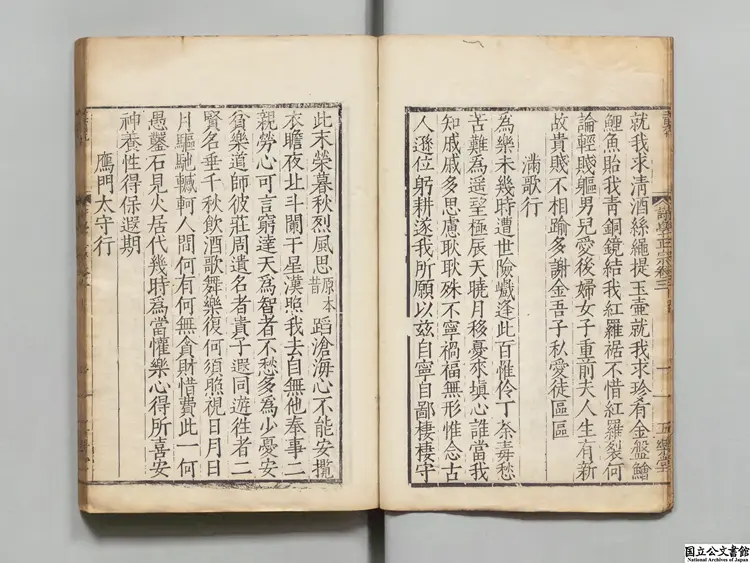 就我求清酒絲繩提玉壺就我求珍肴金盤鱠
鯉魚貽我青銅鏡結我紅羅裾不惜紅羅裂何
論輕賤軀男兒愛後婦女子重前夫人生有新
故貴賤不相踰多謝金吾子私愛徒區區
滿歌行
為樂未幾時遭世險巇逢此百惟伶丁荼毒愁
苦難為遥望極辰天曉月移憂來塡心誰當我
知戚戚多思慮耿耿殊不寧禍福無形惟念古
人遜位躬耕遂我所願以玆自寧自鄙棲棲守
此末榮暮秋烈風思原本昔蹈滄海心不能安攬
衣瞻夜北斗闌干星漢照我去自無他奉事二
親勞心可言窮達天爲智者不愁多爲少憂安
貧樂道師彼莊周遺名者貴子遐同遊徃者二
賢名垂千秋飲酒歌舞樂復何須照視日月日
月驅馳轗軻人間何有何無貪財惜費此一何
愚鑿石見火居代幾時爲當懽樂心得所喜安
神養性得保遐期
鴈門太守行
國立公文書館
National Archives of Japan